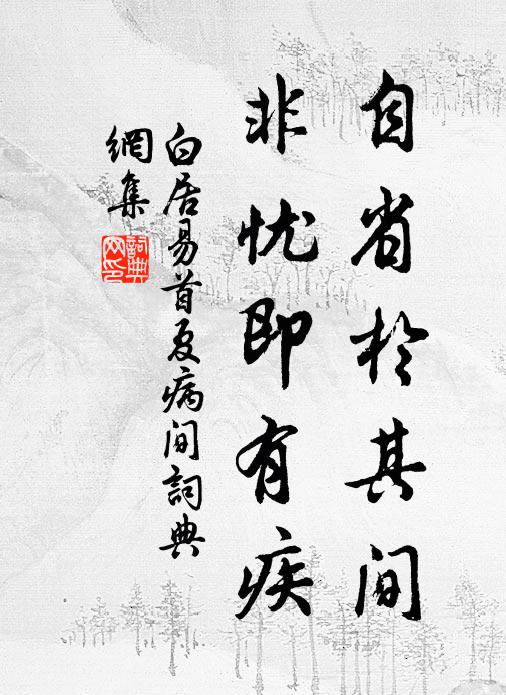 自省於其间
非忧即有疾
白居易首夏病间詞典
網集
詞典网印